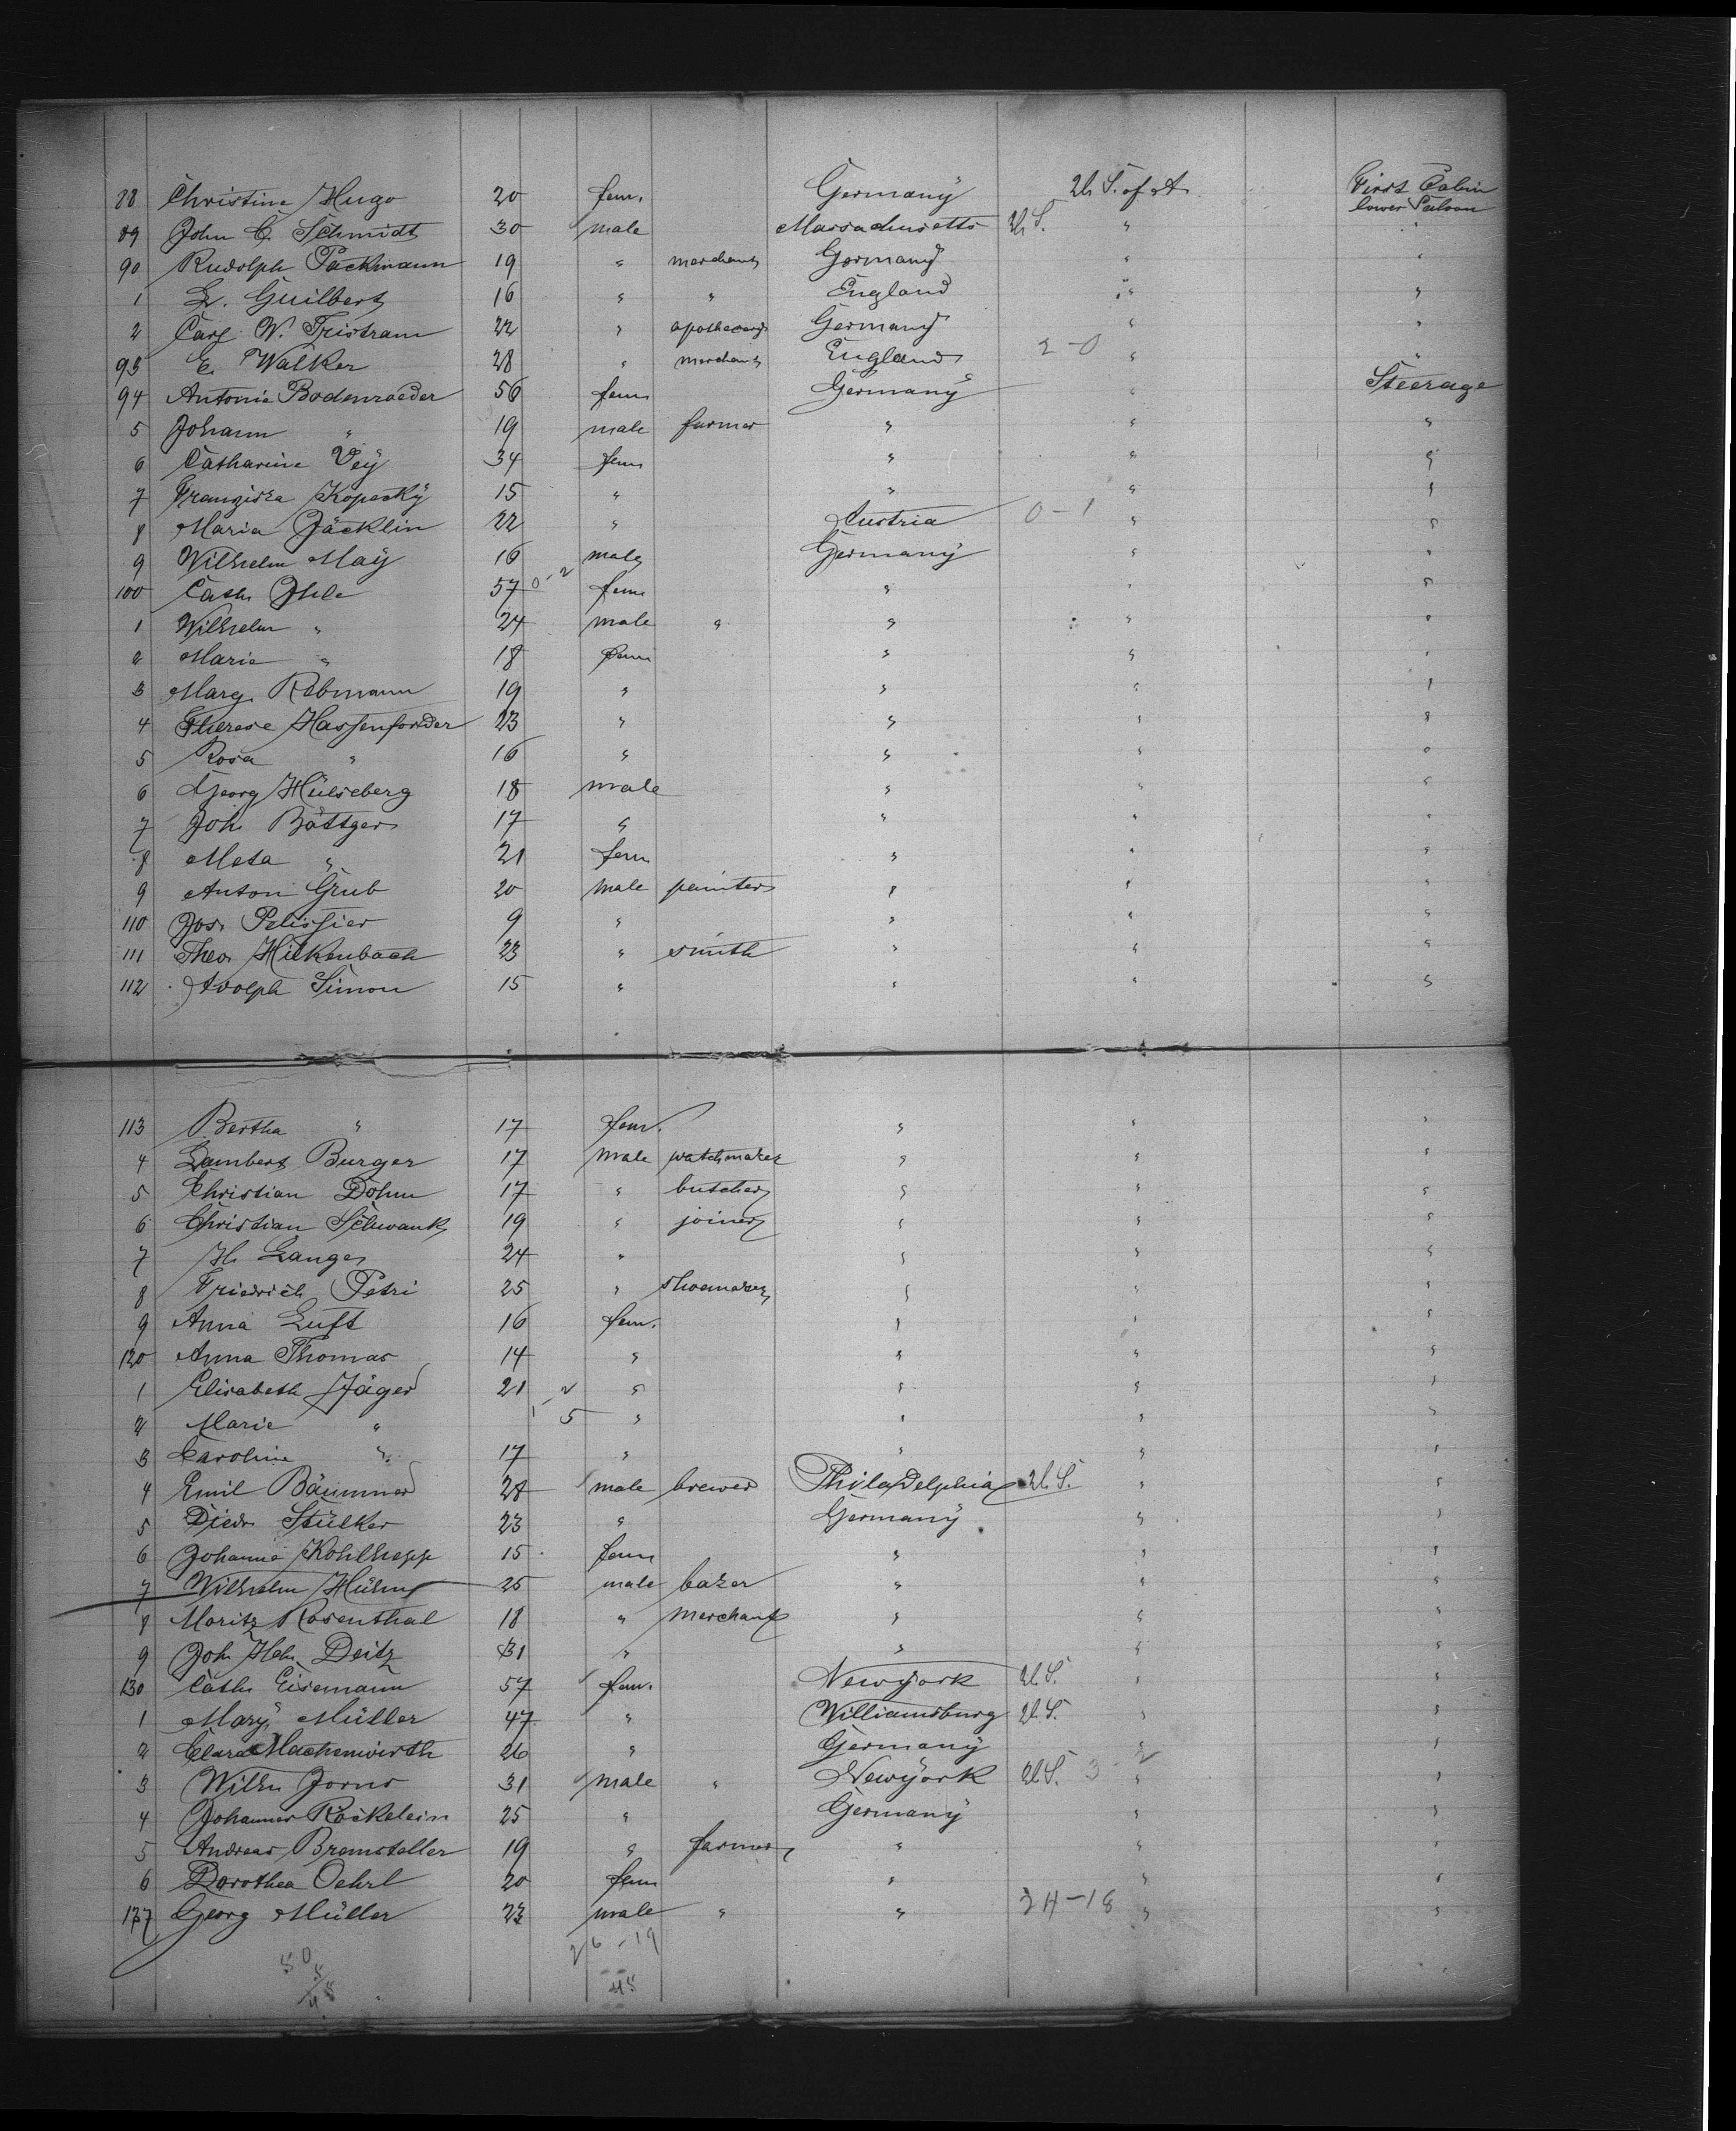 88 Christine Hugo 20 fem. Germany U. S. of A. First Cabin lower Saloon
89 John C. Schmidt 30 male Massachusetts U. S. " "
90 Rudolph Packmann 19 " merchant Germany " "
1 L. Guilbert 16 " " England " "
2 Carl W. Tristram 22 " apothecary Germany " "
93 E. Walker 28 " merchant England 2-0 " "
94 Antonie Bodenroeder 56 fem Germany " Steerage
5 Johann " 19 male farmer " " "
6 Catharine Vey 34 fem " " "
7 Franziska Kopecky 15 " " " "
8 Maria Jäcklin 22 " Austria 0-1 " "
9 Wilhelm May 16 male Germany " "
100 Cath. Ihle 57 0-2 fem " " "
1 Wilhelm " 24 male " " " "
2 Marie " 18 fem " " "
3 Marg. Rebmann 19 " " " "
4 Therese Hassenforder 23 " " " "
5 Rosa " 16 " " " "
6 Georg Hülseberg 18 male " " "
7 Joh. Böttger 17 " " " "
8 Meta " 21 fem " " "
9 Anton Grub 20 male painter " " "
110 Jos. Pelissier 9 " " " "
111 Theo. Hilkenbach 23 " smith " " "
112 Adolph Simon 15 " " " "
113 Bertha " 17 fem. " " "
4 Lambert Burger 17 male watchmaker " " "
5 Christian Döhm 17 " butcher " " "
6 Christian Schwank 19 " joiner " " "
7 H. Lange 24 " " " "
8 Friedrich Petri 25 " shoemaker " " "
9 Anna Luft 16 fem. " " "
120 Anna Thomas 14 " " " "
1 Elisabeth Jäger 21 " " " "
2 Marie " 5 " " " "
3 Caroline " 17 " " " "
4 Emil Bäummer 28 male brewer Philadelphia U. S. " "
5 Diedr. Stülker 23 " Germany " "
6 Johanna Kohlhepp 15 fem " " "
7 Wilhelm Hühn 25 male baker " " "
8 Moritz Rosenthal 18 " merchant " " "
9 Joh. Hch. Deitz 31 " " " "
130 Cath. Eisemann 57 fem. Newyork U. S. " "
1 Mary Müller 47 " Williamsburg U. S. " "
2 Clara Machenwirth 26 " Germany " "
3 Wilh. Jorns 31 male " Newyork U. S. 3 2 " "
4 Johannes Röckelein 25 " Germany " "
5 Andreas Bremsteller 19 " farmer " " "
6 Dorothea Oehrl 20 fem " " "
137 Georg Müller 23 male " " 24-18 " "
26-19
50
5
45
45